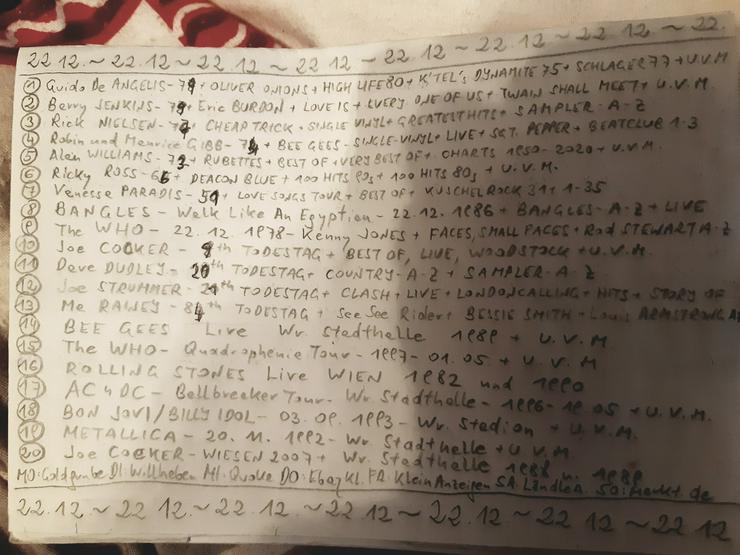 22.12.~22.12~22.12~22.12~22.12~22.12~22.12~22.
① Guido De ANGELIS-79+OLIVER ONIONS+HIGH LIFE 80+K'TEL'S DYNAMITE 75+SCHLAGER 77+U.V.M
② Berry JENKINS-79+Eric BURDON+LOVE IS+EVERY ONE OF US+TWAIN SHALL MEET+U.V.M.
③ Rick NIELSEN-77+CHEAP TRICK+SINGLE VINYL+GREATEST HITS+SAMPLER-A-Z
④ Robin und Maurice GIBB-74+BEE GEES-SINGLE-VINYL+LIVE+SGT. PEPPER+BEATCLUB 1-3
⑤ Alan WILLIAMS-73+RUBETTES+BEST OF+VERY BEST OF+CHARTS 1950-2020+U.V.M.
⑥ Ricky ROSS-66+DEACON BLUE+100 HITS 90s+100 HITS 80s+U.V.M.
⑦ Venesse PARADIS-51+LOVE SONGS TOUR+BEST OF+KUSCHELROCK 31+1-35
⑧ BANGLES-Walk Like An Egyptian-22.12.1986+BANGLES-A-Z+LIVE
⑨ The WHO-22.12.1978-Kenny JONES+FACES, SMALL FACES+Rod STEWART A-Z
⑩ Joe COCKER-9th TODESTAG+BEST OF, LIVE, WOODSTOCK+U.V.M.
⑪ Dave DUDLEY-20th TODESTAG+COUNTRY-A-Z+SAMPLER-A-Z
⑫ Joe STRUMMER-21th TODESTAG+CLASH+LIVE+LONDON CALLING+HITS+STORY OF
⑬ Ma RAINEY-84th TODESTAG+See See Rider+BESSIE SMITH+Louis ARMSTRONG
⑭ BEE GEES Live Wr. Stadthalle 1989+U.V.M.
⑮ The WHO-Quadrophenie Tour-1997-01.05+U.V.M
⑯ ROLLING STONES Live WIEN 1982 und 1990
⑰ AC⚡DC-Ballbreaker Tour-Wr. Stadthalle-1996-19.05+U.V.M.
⑱ BON JOVI/BILLY IDOL-03.09.1993-Wr. Stadion+U.V.M.
⑲ METALLICA-20.11.1992-Wr Stadthalle+U.V.M.
⑳ Joe COCKER-WIESEN 2007+Wr. Stadthalle 1988 u. 1989
MO:Goldgrube DI:Willheben MI:Quoke DO:Ebay Kl. FR:Klein Anzeigen SA:LändleA. SO:Markt.de
22.12.~22.12~22.12~22.12~22.12~22.12~22.12